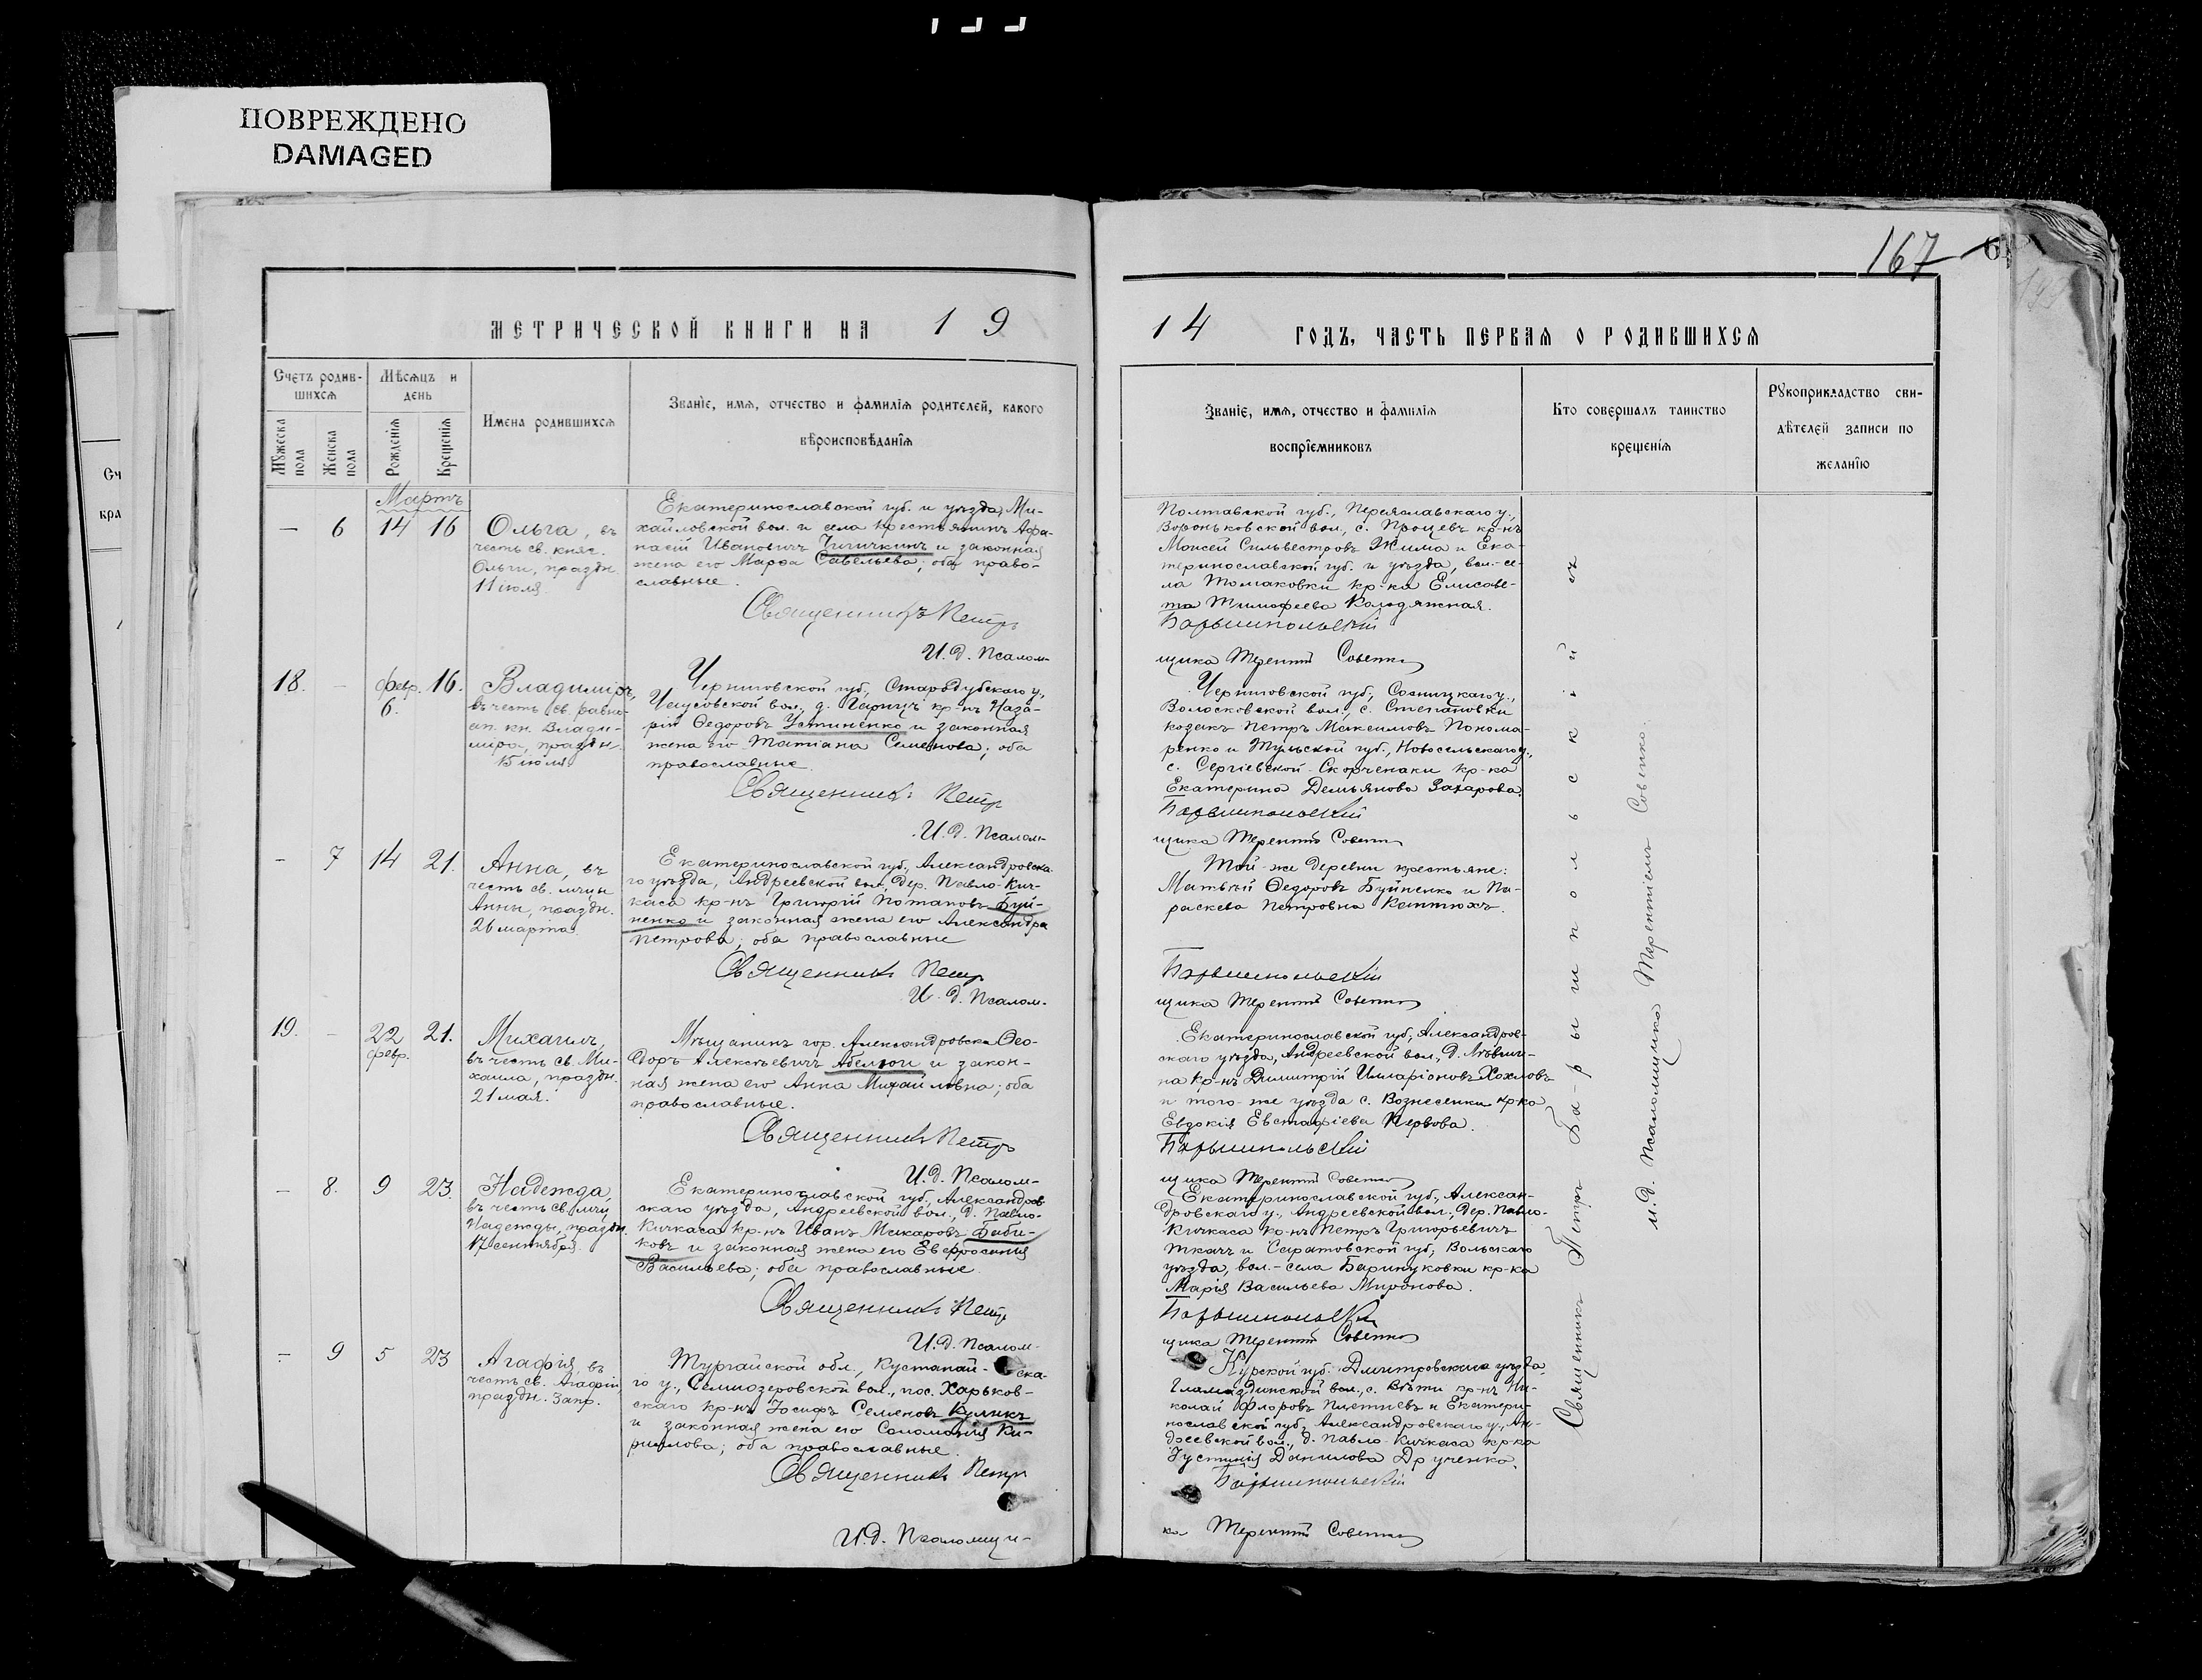 ПОВРЕЖДЕНО
DAMAGED
167
МЕТРИЧЕСКОЙ КНИГИ НА 19
14 ГОДЪ, ЧАСТЬ ПЕРВАЯ О РОДИВШИХСЯ
Счетъ родив-
шихся
Мѣсяцъ и
день
Мужеска
пола
Женска
пола
Рожденія
Крещенія
Имена родившихся
Званіе, имя, отчество и фамилія родителей, какого
вѣроисповѣданія
Званіе, имя, отчество и фамилія
воспріемниковъ
Кто совершалъ таинство
крещенія
Рукоприкладство сви-
дѣтелей записи по
желанію
Сч
кра
Мартъ
— 6 14 16
Ольга, въ
честь св. княг.
Ольги, праздн.
11 іюля.
Екатеринославской губ. и уѣзда, Ми-
хайловской вол. и села крестьянинъ Афа-
насій Ивановичъ Чигичкинъ и законная
жена его Марѳа Савельева; оба право-
славные.
Священникъ Петръ
И. д. Псалом-
Полтавской губ., Переяславскаго у.,
Вороньковской вол., с. Процевъ кр-нъ
Моисей Сильвестровъ Жима и Ека-
теринославской губ. и уѣзда, вол.-се-
ла Томаковки кр-ка Елисаве-
та Тимофеева Колодяжная.
Барышпольскій
щика Терентій Совенко
18. — февр. 16.
6.
Владиміръ,
въ честь св. равно-
ап. кн. Влади-
мира, праздн.
15 іюля.
Черниговской губ., Стародубскаго у.,
Чаусовской вол., д. Гарицъ кр-нъ Наза-
рій Ѳедоровъ Устиненко и законная
жена его Татіана Семенова; оба
православные.
Священникъ Петръ
И. д. Псалом-
Черниговской губ., Сосницкаго у.,
Волосковской вол., с. Степановки
козакъ Петръ Максимовъ Понома-
ренко и Тульской губ., Новосельскаго у.,
с. Сергіевской-Скорченаки кр-ка
Екатерина Демьянова Захарова.
Барышпольскій
щика Терентій Совенко
— 7 14 21.
Анна, въ
честь св. мчцы
Анны, праздн.
26 марта.
Екатеринославской губ., Александровска-
го уѣзда, Андреевской вол., дер. Павло-Кич-
каса кр-нъ Григорій Потаповъ Буй-
ненко и законная жена его Александра
Петрова; оба православные
Священникъ Петръ
И. д. Псалом-
Той-же деревни крестьяне:
Матвѣй Ѳедоровъ Буйненко и Па-
раскева Петровна Коттюхъ.
Барышпольскій
щика Терентій Совенко
19. — 22 21.
февр.
Михаилъ,
въ честь св. Ми-
хаила, праздн.
21 мая.
Мѣщанинъ гор. Александровска Ѳео-
доръ Алексѣевичъ Абелюги и закон-
ная жена его Анна Михайловна; оба
православные.
Священникъ Петръ
И. д. Псалом-
Екатеринославской губ., Александров-
скаго уѣзда, Андреевской вол., д.
на кр-нъ Димитрій Илларіоновъ Хохловъ
и того-же уѣзда с. Вознесенки кр-ка
Евдокія Евстафіева Первова.
Барышпольскій
щика Терентій Совенко
— 8. 9 23.
Надежда,
въ честь св. мчц.
Надежды, праздн.
17 сентября.
Екатеринославской губ., Александров-
скаго уѣзда, Андреевской вол., д. Павло-
Кичкаса кр-нъ Иванъ Макаровъ Баби-
ковъ и законная жена его Евфросинія
Васильева; оба православные.
Священникъ Петръ
И. д. Псалом-
Екатеринославской губ., Алексан-
дровскаго у., Андреевской вол., дер. Павло-
Кичкаса кр-нъ Петръ Григорьевичъ
Ткачъ и Саратовской губ., Вольскаго
уѣзда, вол.-села Барнуковки кр-ка
Марія Васильева Миронова.
Барышпольскій
щика Терентій Совенко
— 9 5 23
Агафія, въ
честь св. Агафіи,
праздн. 3 апр.
Тургайской обл., Кустанай-ска-
го у., Семиозеровской вол., пос. Харьков-
скаго кр-нъ Іосифъ Семеновъ Куликъ
и законная жена его Соломонія Ки-
рилова; оба православные.
Священникъ Петръ
И. д. Псаломщи-
Курской губ. Дмитровскаго уѣзда,
Гламаздинской вол., с. кр-нъ Ни-
колай Флоровъ и Екатери-
нославской губ., Александровскаго у., Ан-
дреевской вол., д. Павло-Кичкаса кр-ка
Іустинія Данилова Друченко.
Барышпольскій
ка Терентій Совенко
Священникъ Петръ Ба-рышпольскій
и. д. Псаломщика Терентій Совенко.